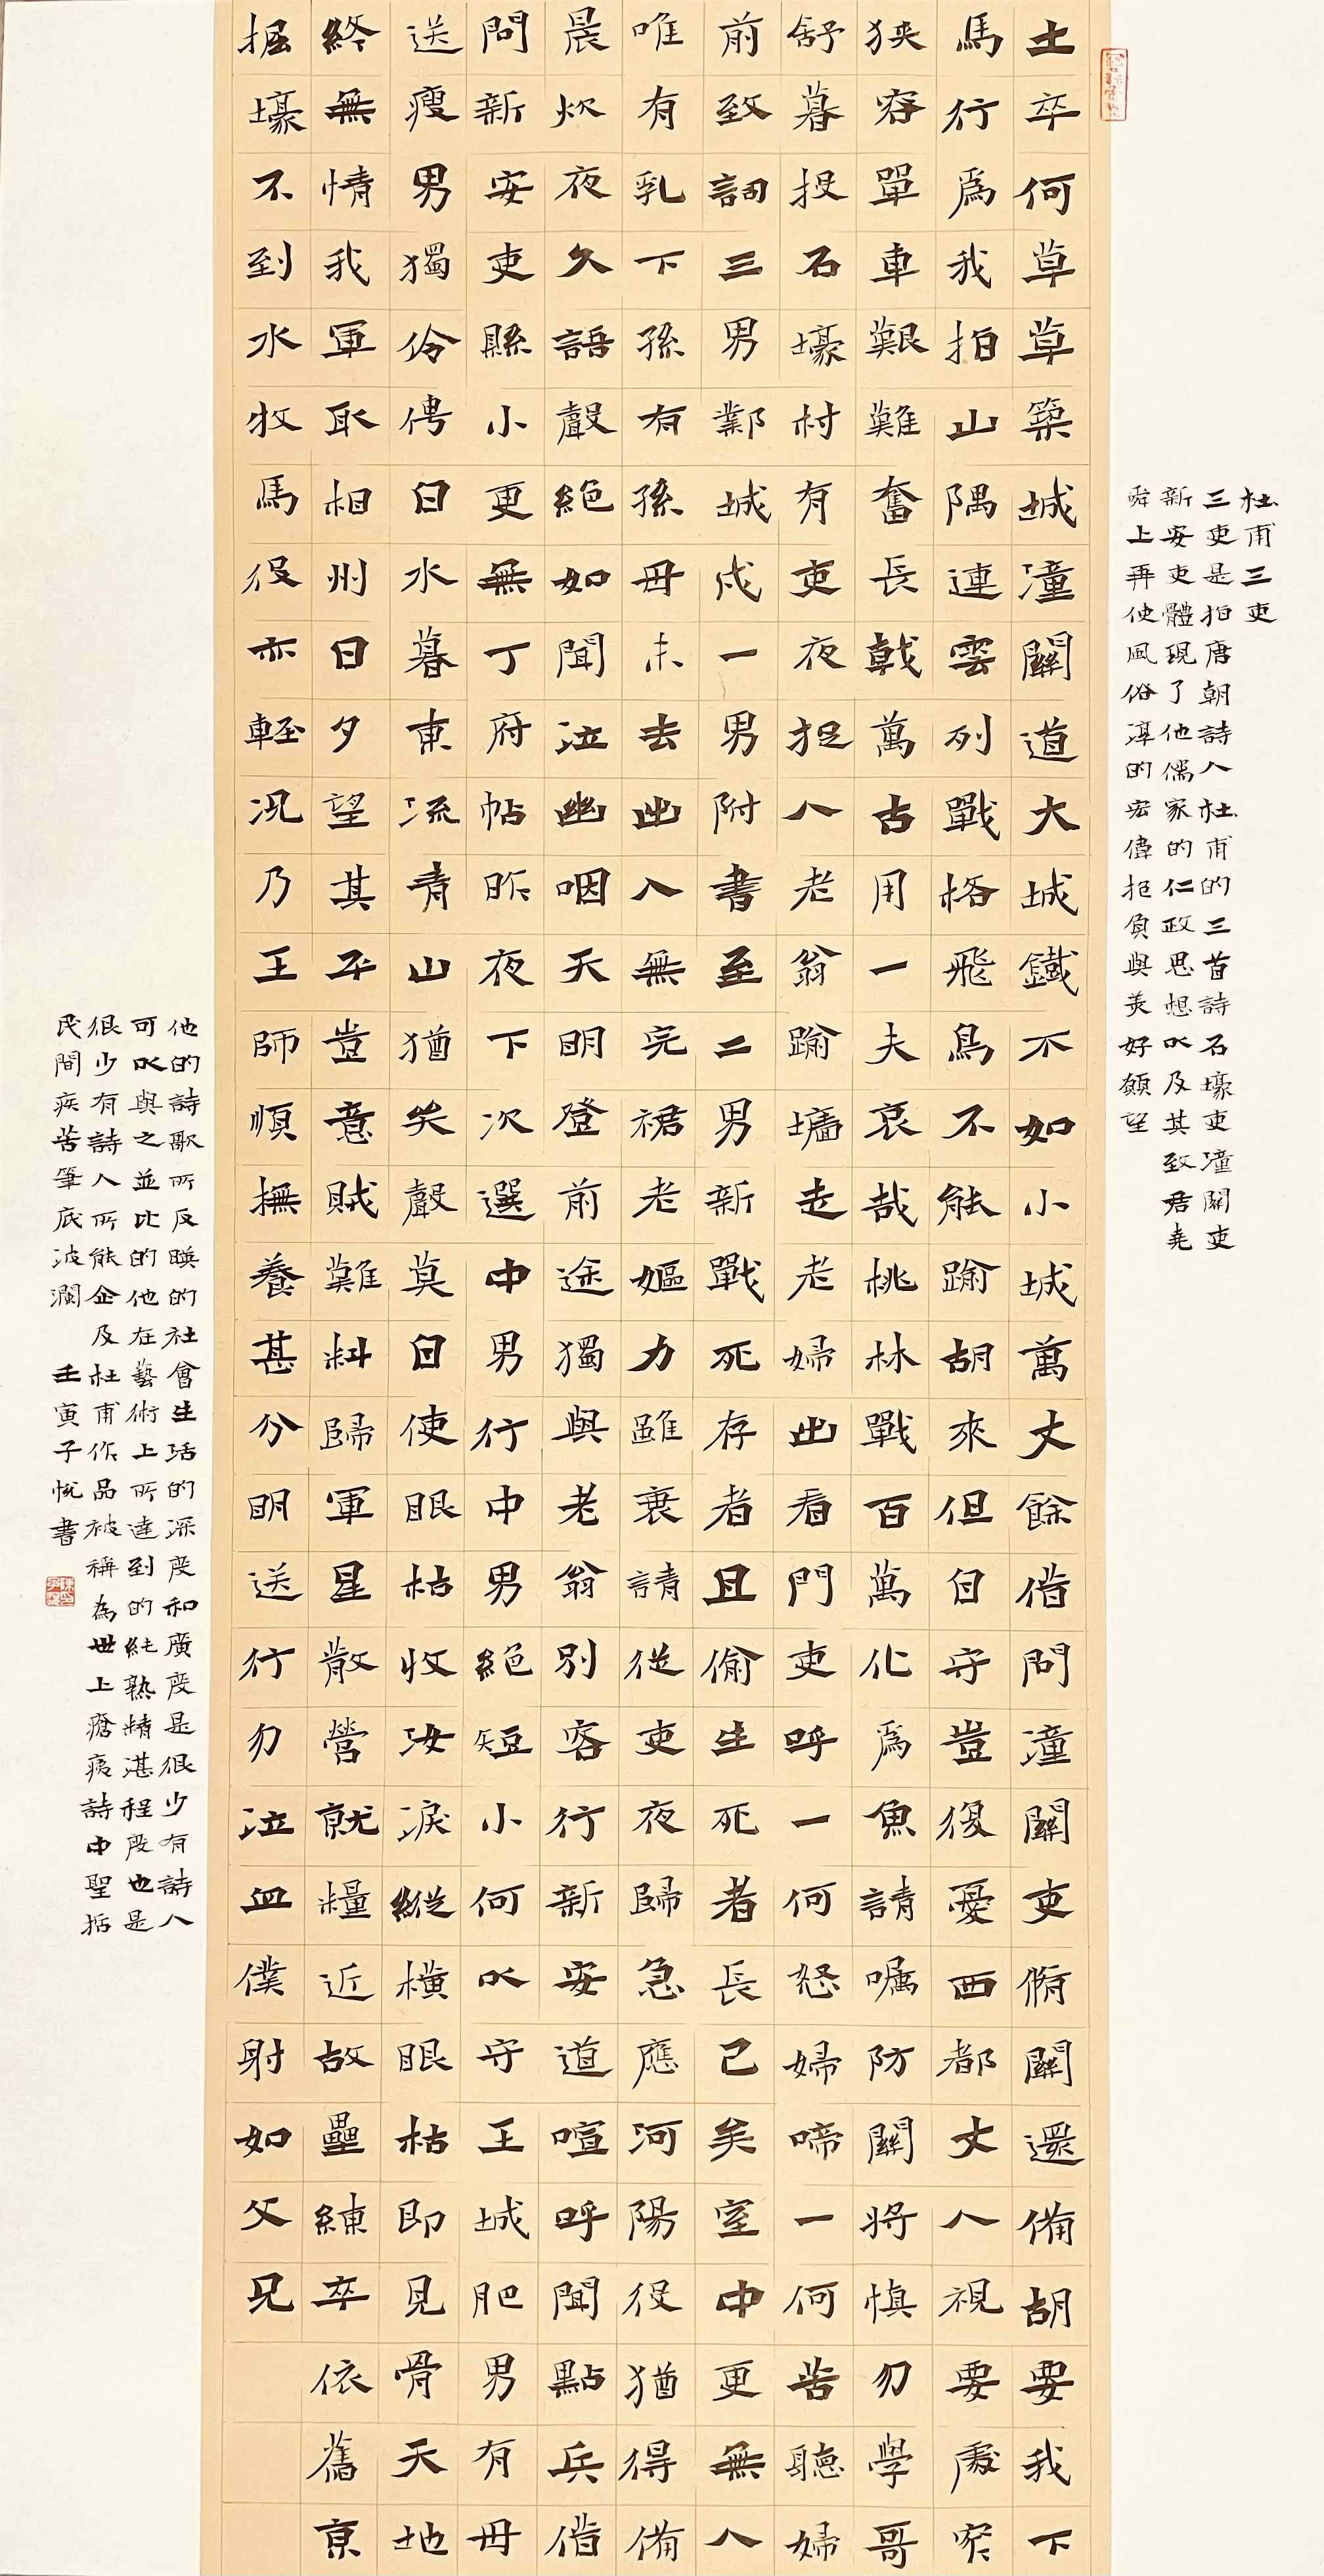 杜甫三吏
三吏是指唐朝詩人杜甫的三首詩石壕吏潼關吏
新安吏體現了他儒家的仁政思想以及其致君堯
舜上再使風俗淳的宏偉抱負與美好願望
士卒何草草築城潼關道大城鐵不如小城萬丈餘借問潼關吏脩關還備胡要我下
馬行爲我指山隅連雲列戰格飛鳥不能踰胡來但自守豈復憂西都丈人視要處窄
狹容單車艱難奮長戟萬古用一夫哀哉桃林戰百萬化爲魚請囑防關將慎勿學哥
舒暮投石壕村有吏夜捉人老翁踰墻走老婦出看門吏呼一何怒婦啼一何苦聽婦
前致詞三男鄴城戍一男附書至二男新戰死存者且偷生死者長已矣室中更無人
唯有乳下孫有孫母未去出入無完裙老嫗力雖衰請從吏夜歸急應河陽役猶得備
晨炊夜久語聲絕如聞泣幽咽天明登前途獨與老翁別客行新安道喧呼聞點兵借
問新安吏縣小更無丁府帖昨夜下次選中男行中男絕短小何以守王城肥男有母
送瘦男獨伶俜白水暮東流青山猶哭聲莫自使眼枯收汝淚縱橫眼枯即見骨天地
終無情我軍取相州日夕望其平豈意賊難料歸軍星散營就糧近故壘練卒依舊京
掘壕不到水牧馬役亦輕況乃王師順撫養甚分明送行勿泣血僕射如父兄
他的詩歌所反映的社會生活的深度和廣度是很少有詩人
可以與之並比的他在藝術上所達到的純熟精湛程度也是
很少有詩人所能企及杜甫作品被稱為世上瘡痍詩中聖括
民間疾苦筆底波瀾 壬寅子悅書